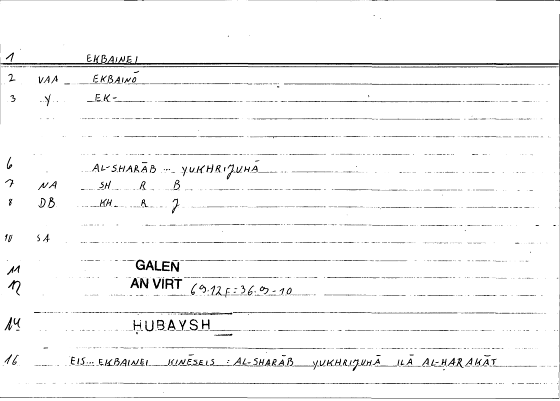 1 EKBAINEI
2 VAA EKBAINŌ
3 Y EK-
6 AL-SHARĀB ... YUKHRIJUHĀ
7 NA SH R B
8 DB KH R J
10 SA
11 GALEN
12 AN VIRT 69.12 F = 36.9-10
14 ḤUBAYSH
16 EIS... EKBAINEI KINĒSEIS : AL-SHARĀB YUKHRIJUHĀ ILĀ AL-ḤARAKĀT